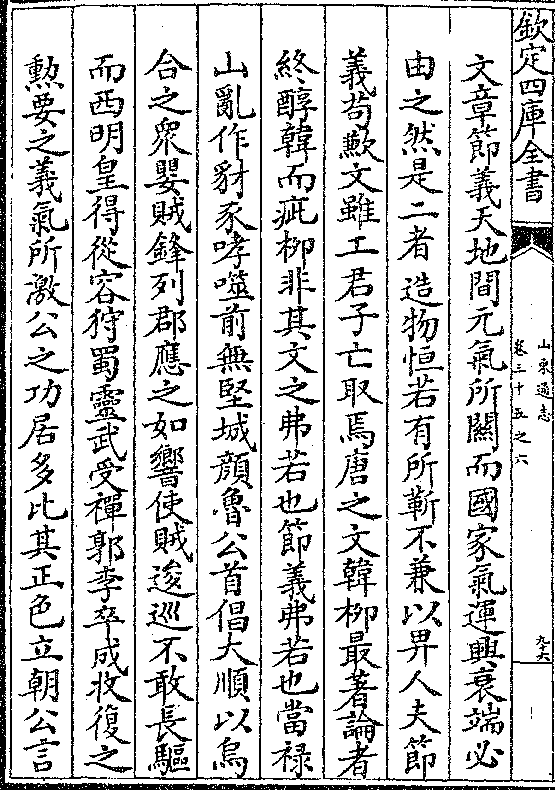 欽定四庫全書
山東通志
卷三十五之六
九十六
文章節義天地間元氣所關而國家氣運興衰端必
由之然是二者造物恒若有所靳不兼以畀人夫節
義苟歉文雖工君子亡取焉唐之文韓柳最著論者
終醇韓而疵柳非其文之弗若也節義弗若也當祿
山亂作豺豕哮噬前無堅城顔魯公首倡大順以烏
合之衆嬰賊鋒列郡應之如響使賊逡巡不敢長驅
而西明皇得從容狩蜀靈武受禪郭李卒成收復之
勲要之義氣所激公之功居多比其正色立朝公言